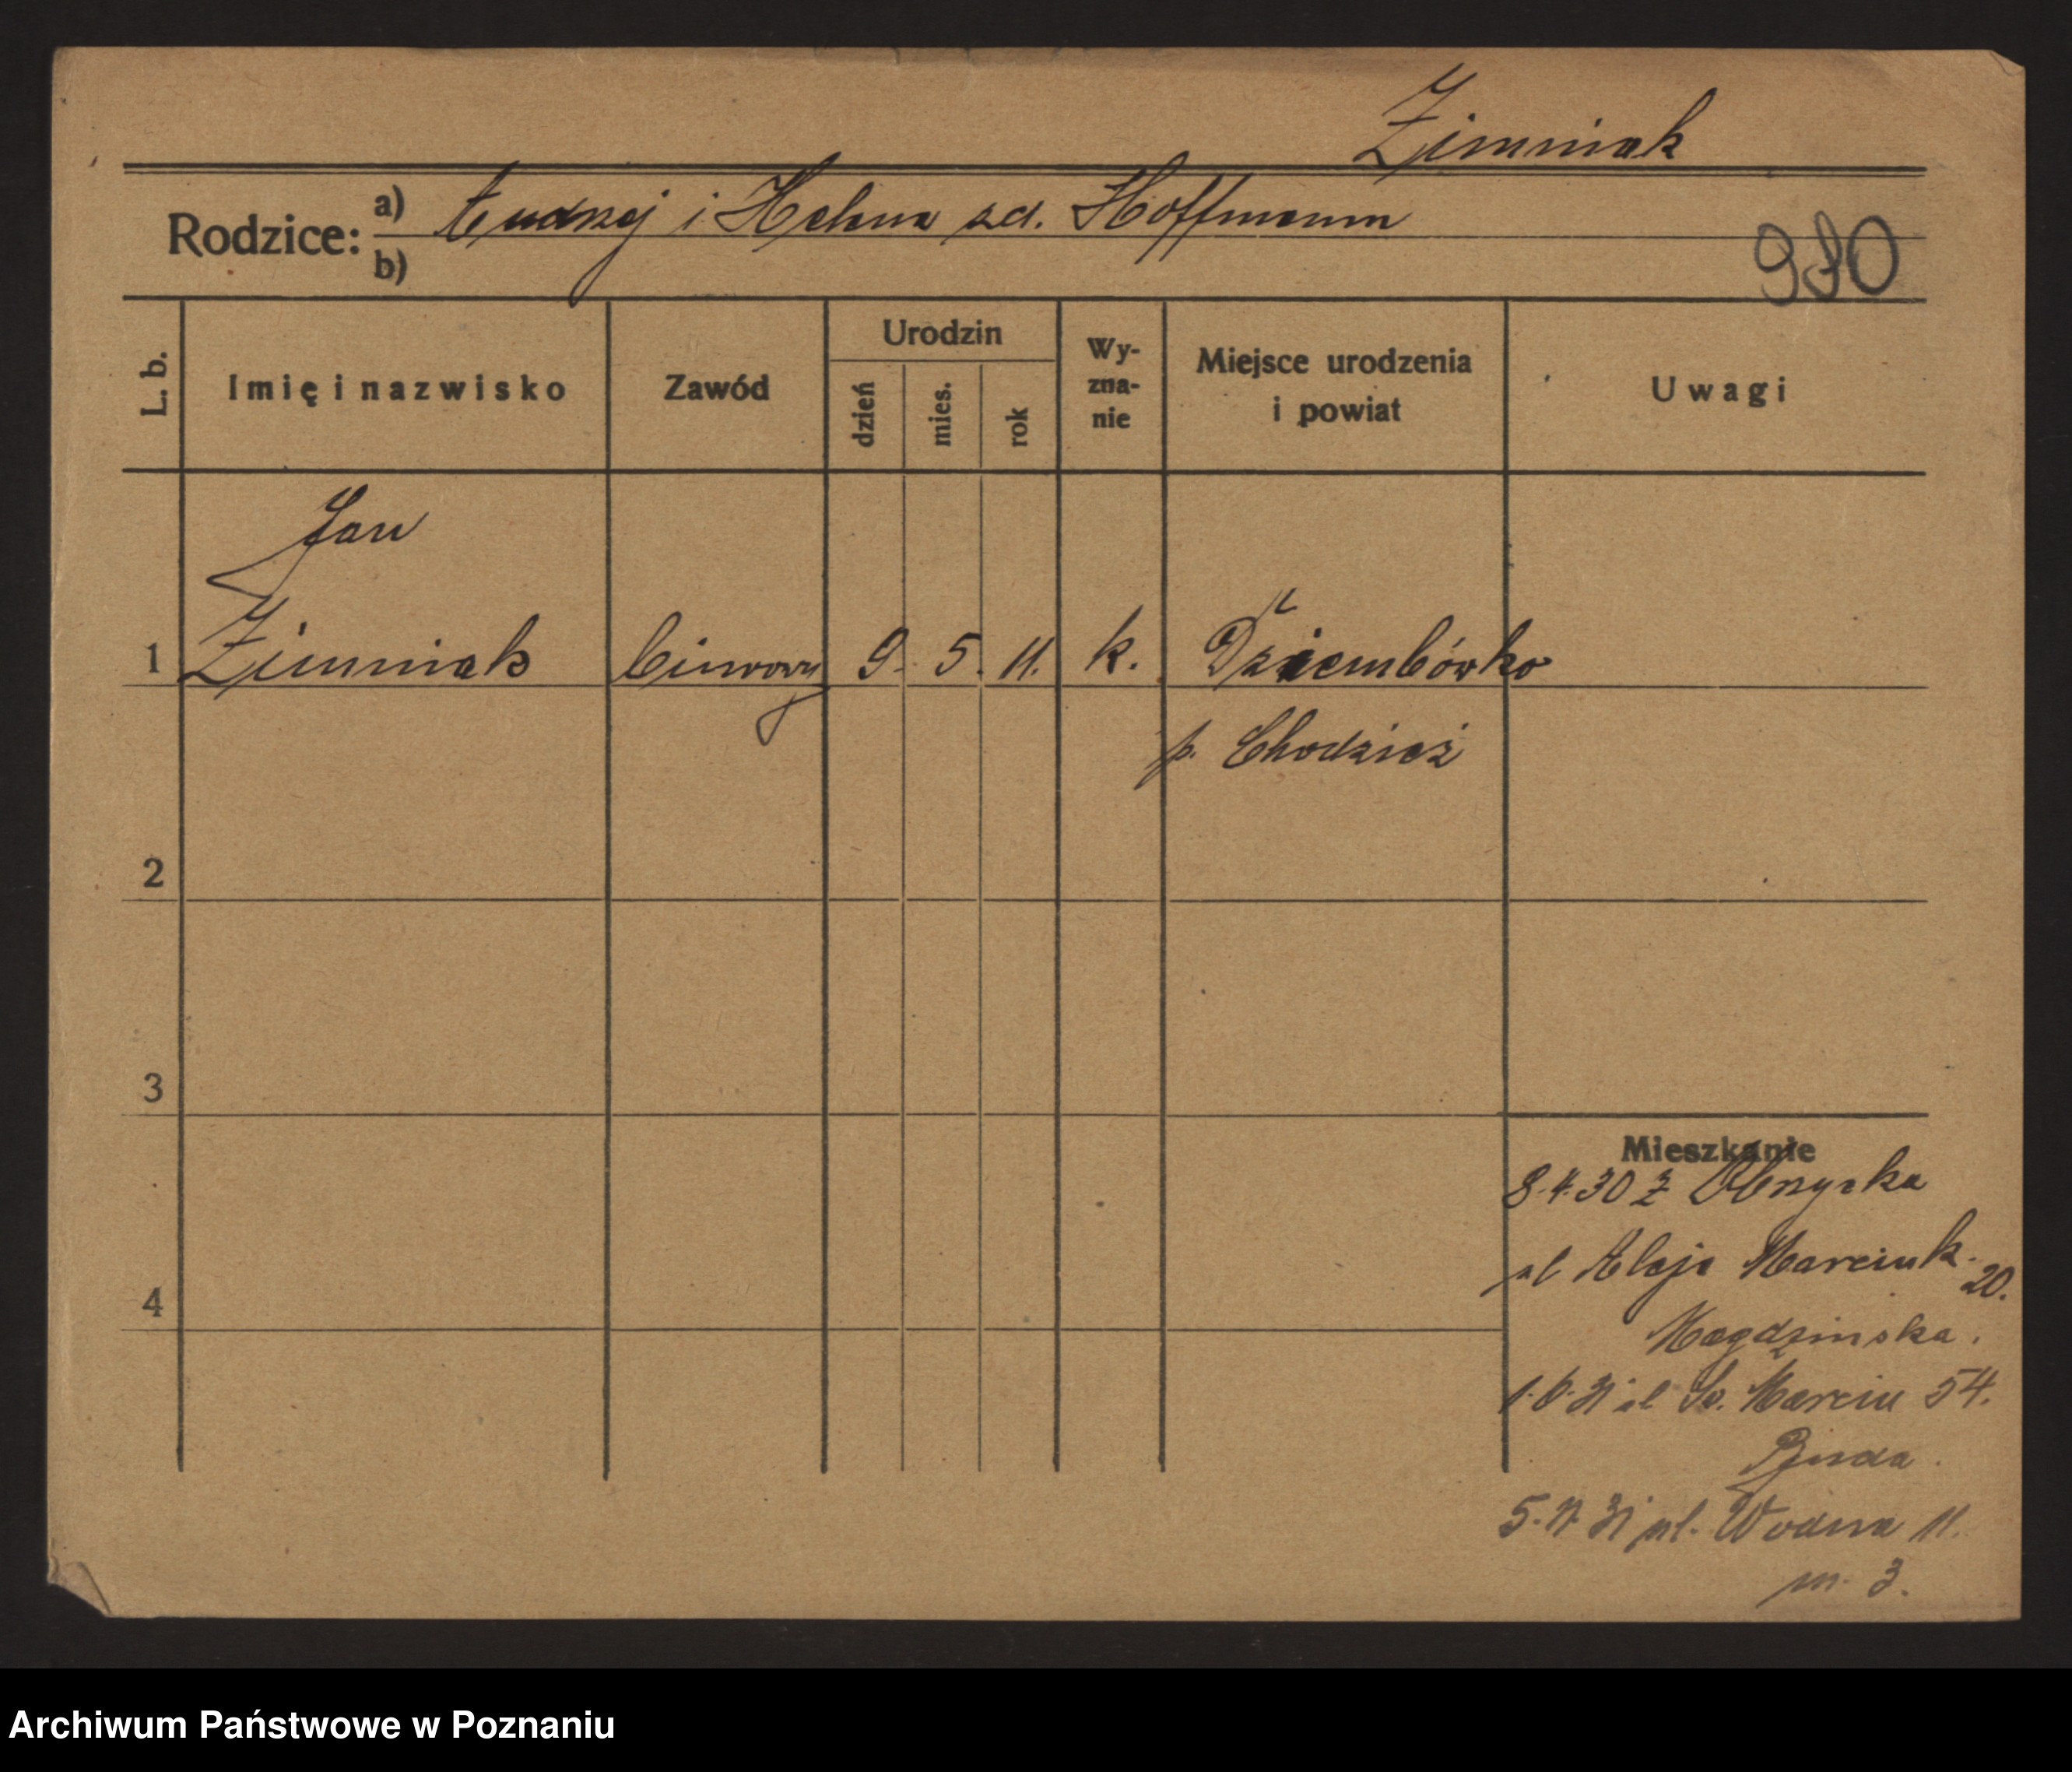 Zimniak
Rodzice: a) Andrzej i Helena zd. Hoffmann
b)
980
L. b.
Imię i nazwisko
Zawód
Urodzin
dzień
mies.
rok
Wy-
zna-
nie
Miejsce urodzenia
i powiat
Uwagi
Jan
1 Zimniak biurowy 9. 5. 11. k. Dziembówko
p. Chodzież
2
3
4
Mieszkanie
8.4.30 z Obrzycka
ul Aleje Marcink. 20.
Magdzinska.
31 ul Św. Marcin 54.
31 ul. Wodna 11.
m. 3.
Archiwum Państwowe w Poznaniu